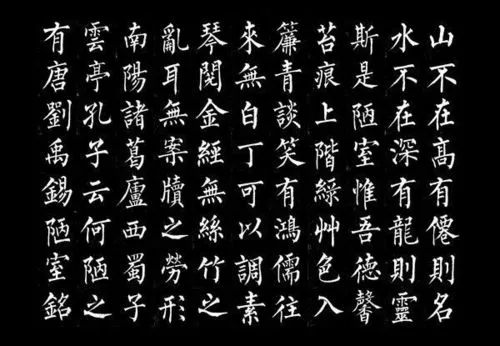 山不在高有僊則名
水不在深有龍則靈
斯是陋室惟吾德馨
苔痕上階綠艸色入
簾青談笑有鴻儒往
來無白丁可以調素
琴閱金經無絲竹之
亂耳無案牘之勞形
南陽諸葛廬西蜀子
雲亭孔子云何陋之
有唐劉禹錫陋室銘